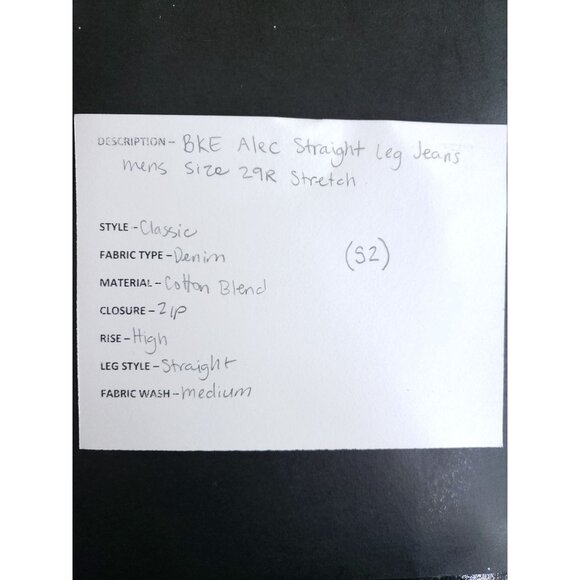 DESCRIPTION - BKE Alec Straight Leg Jeans
mens size 29R Stretch
STYLE - Classic
FABRIC TYPE - Denim
(S2)
MATERIAL - Cotton Blend
CLOSURE - Zip
RISE - High
LEG STYLE - Straight
FABRIC WASH - medium